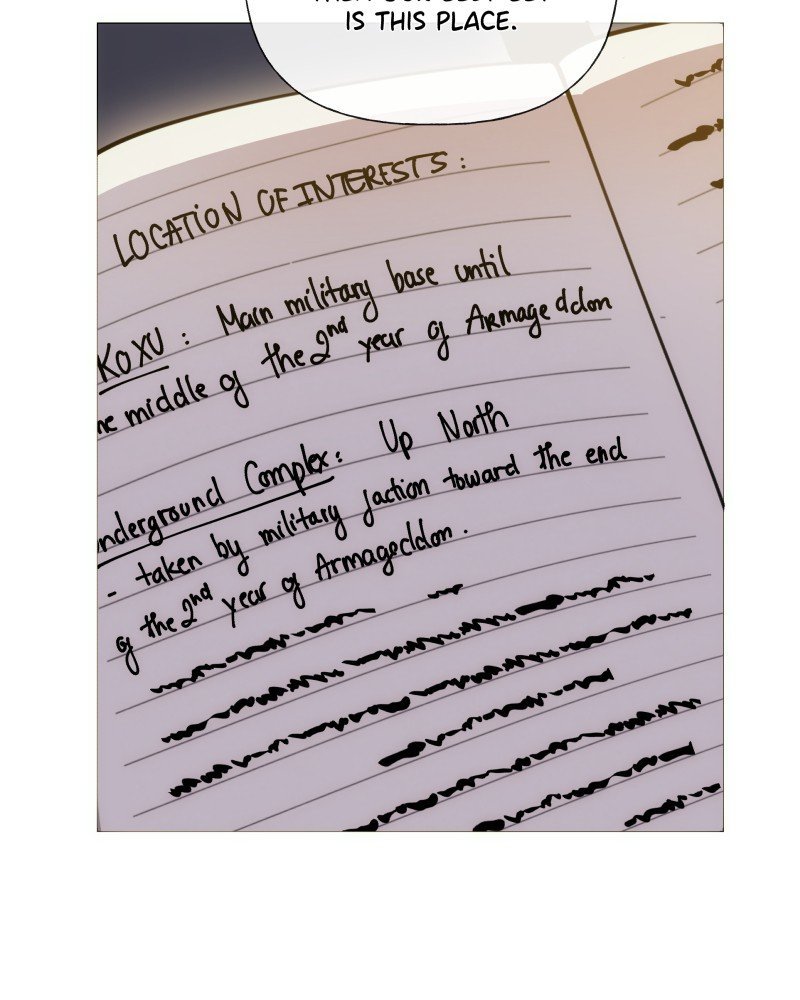 IS THIS PLACE.
LOCATION OF INTERESTS :
KOXU : Main military base until
middle of the 2nd year of Armageddon
Complex : Up North
- taken by military faction toward the end
of the 2nd year of Armageddon.